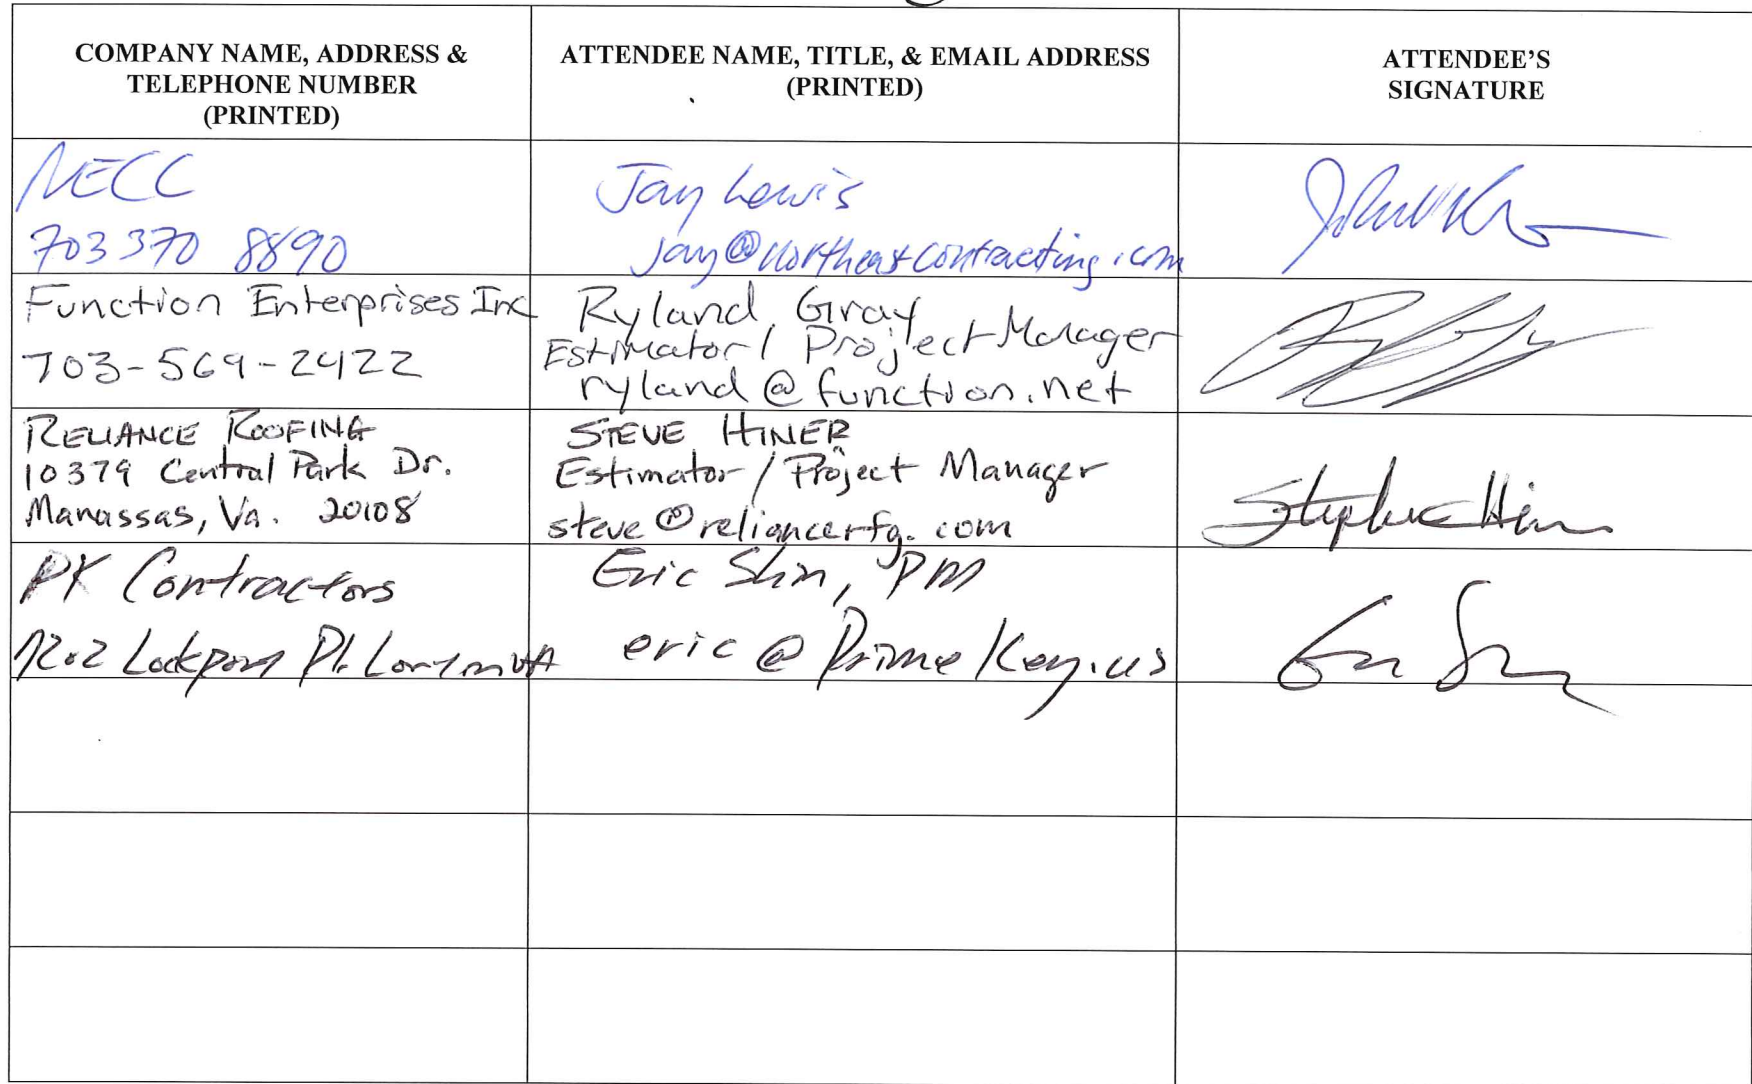 COMPANY NAME, ADDRESS &
TELEPHONE NUMBER
(PRINTED)
ATTENDEE NAME, TITLE, & EMAIL ADDRESS
(PRINTED)
ATTENDEE'S
SIGNATURE
NECC
703 370 8890
Jay Lewis
jay@northeastcontracting.com
Function Enterprises Inc
703-569-2422
Ryland Gray
Estimator/ Project Manager
ryland@function.net
RELIANCE ROOFING
10379 Central Park Dr.
Manassas, Va. 20108
STEVE HINER
Estimator/Project Manager
steve@reliancerfg.com
PK Contractors
Pl. VA
Eric Shin, PM
eric@PrimeKey.us